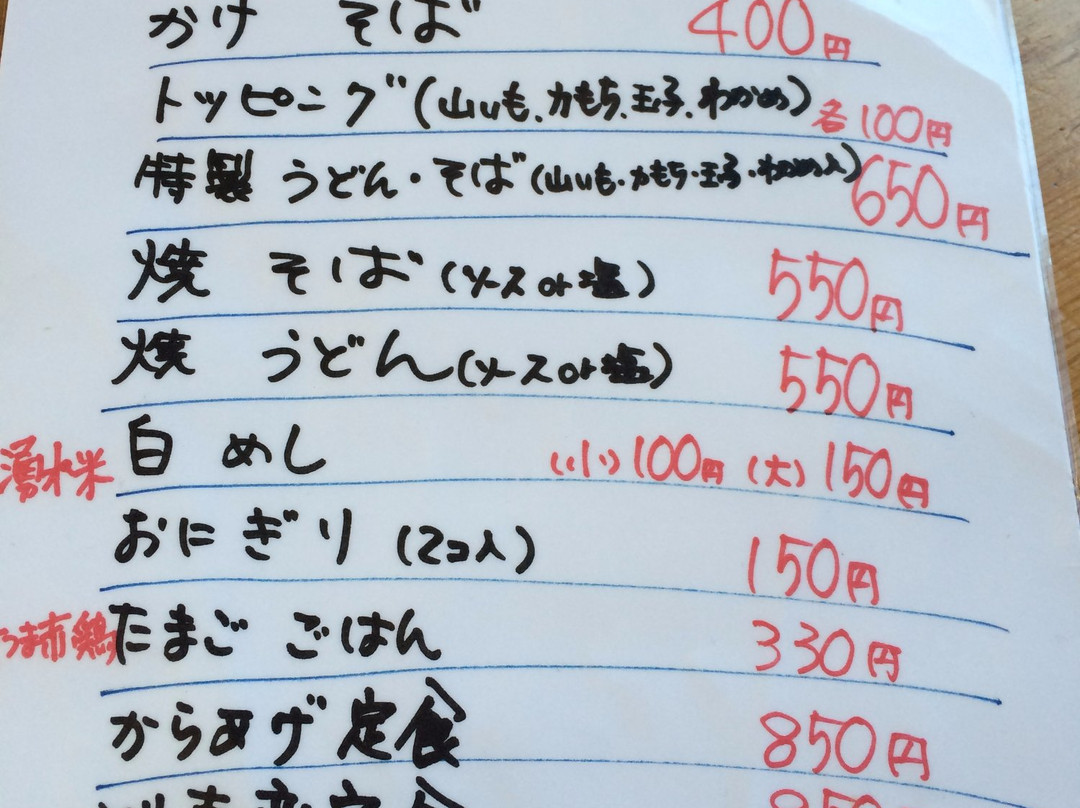 かけ そば 400円
トッピング(山いも、かもち、玉子、わかめ) 各100円
特製 うどん・そば(山いも・かもち・玉子・わかめ入) 650円
焼 そば(ソースor塩) 550円
焼 うどん(ソースor塩) 550円
湧水米 白 めし (小)100円 (大)150円
おにぎり (2コ入) 150円
うま市鶏 たまご ごはん 330円
からあげ 定食 850円
定食 850